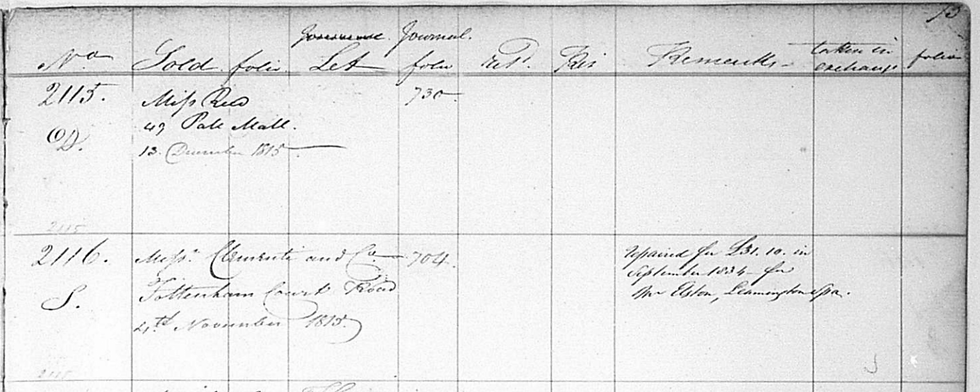 13
Journal
No Sold folio Let folio Retd. Remarks taken in exchange folio
2115. Miss Reid 730.
D. 49 Pall Mall.
13 December 1815
2115
2116. Messrs. Clementi and Co. 704.
S. Tottenham Court Road
4th November 1815.
repaired for £31.10. in
September 1834 for
Mr Elston, Leamington Spa.